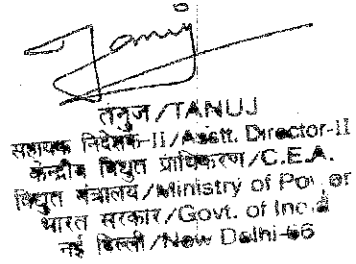 Tanuj
तनुज/TANUJ
सहायक निदेशक-II/Asstt. Director-II
केन्द्रीय विद्युत प्राधिकरण/C.E.A.
विद्युत मंत्रालय/Ministry of Power
भारत सरकार/Govt. of India
नई दिल्ली/New Delhi-66